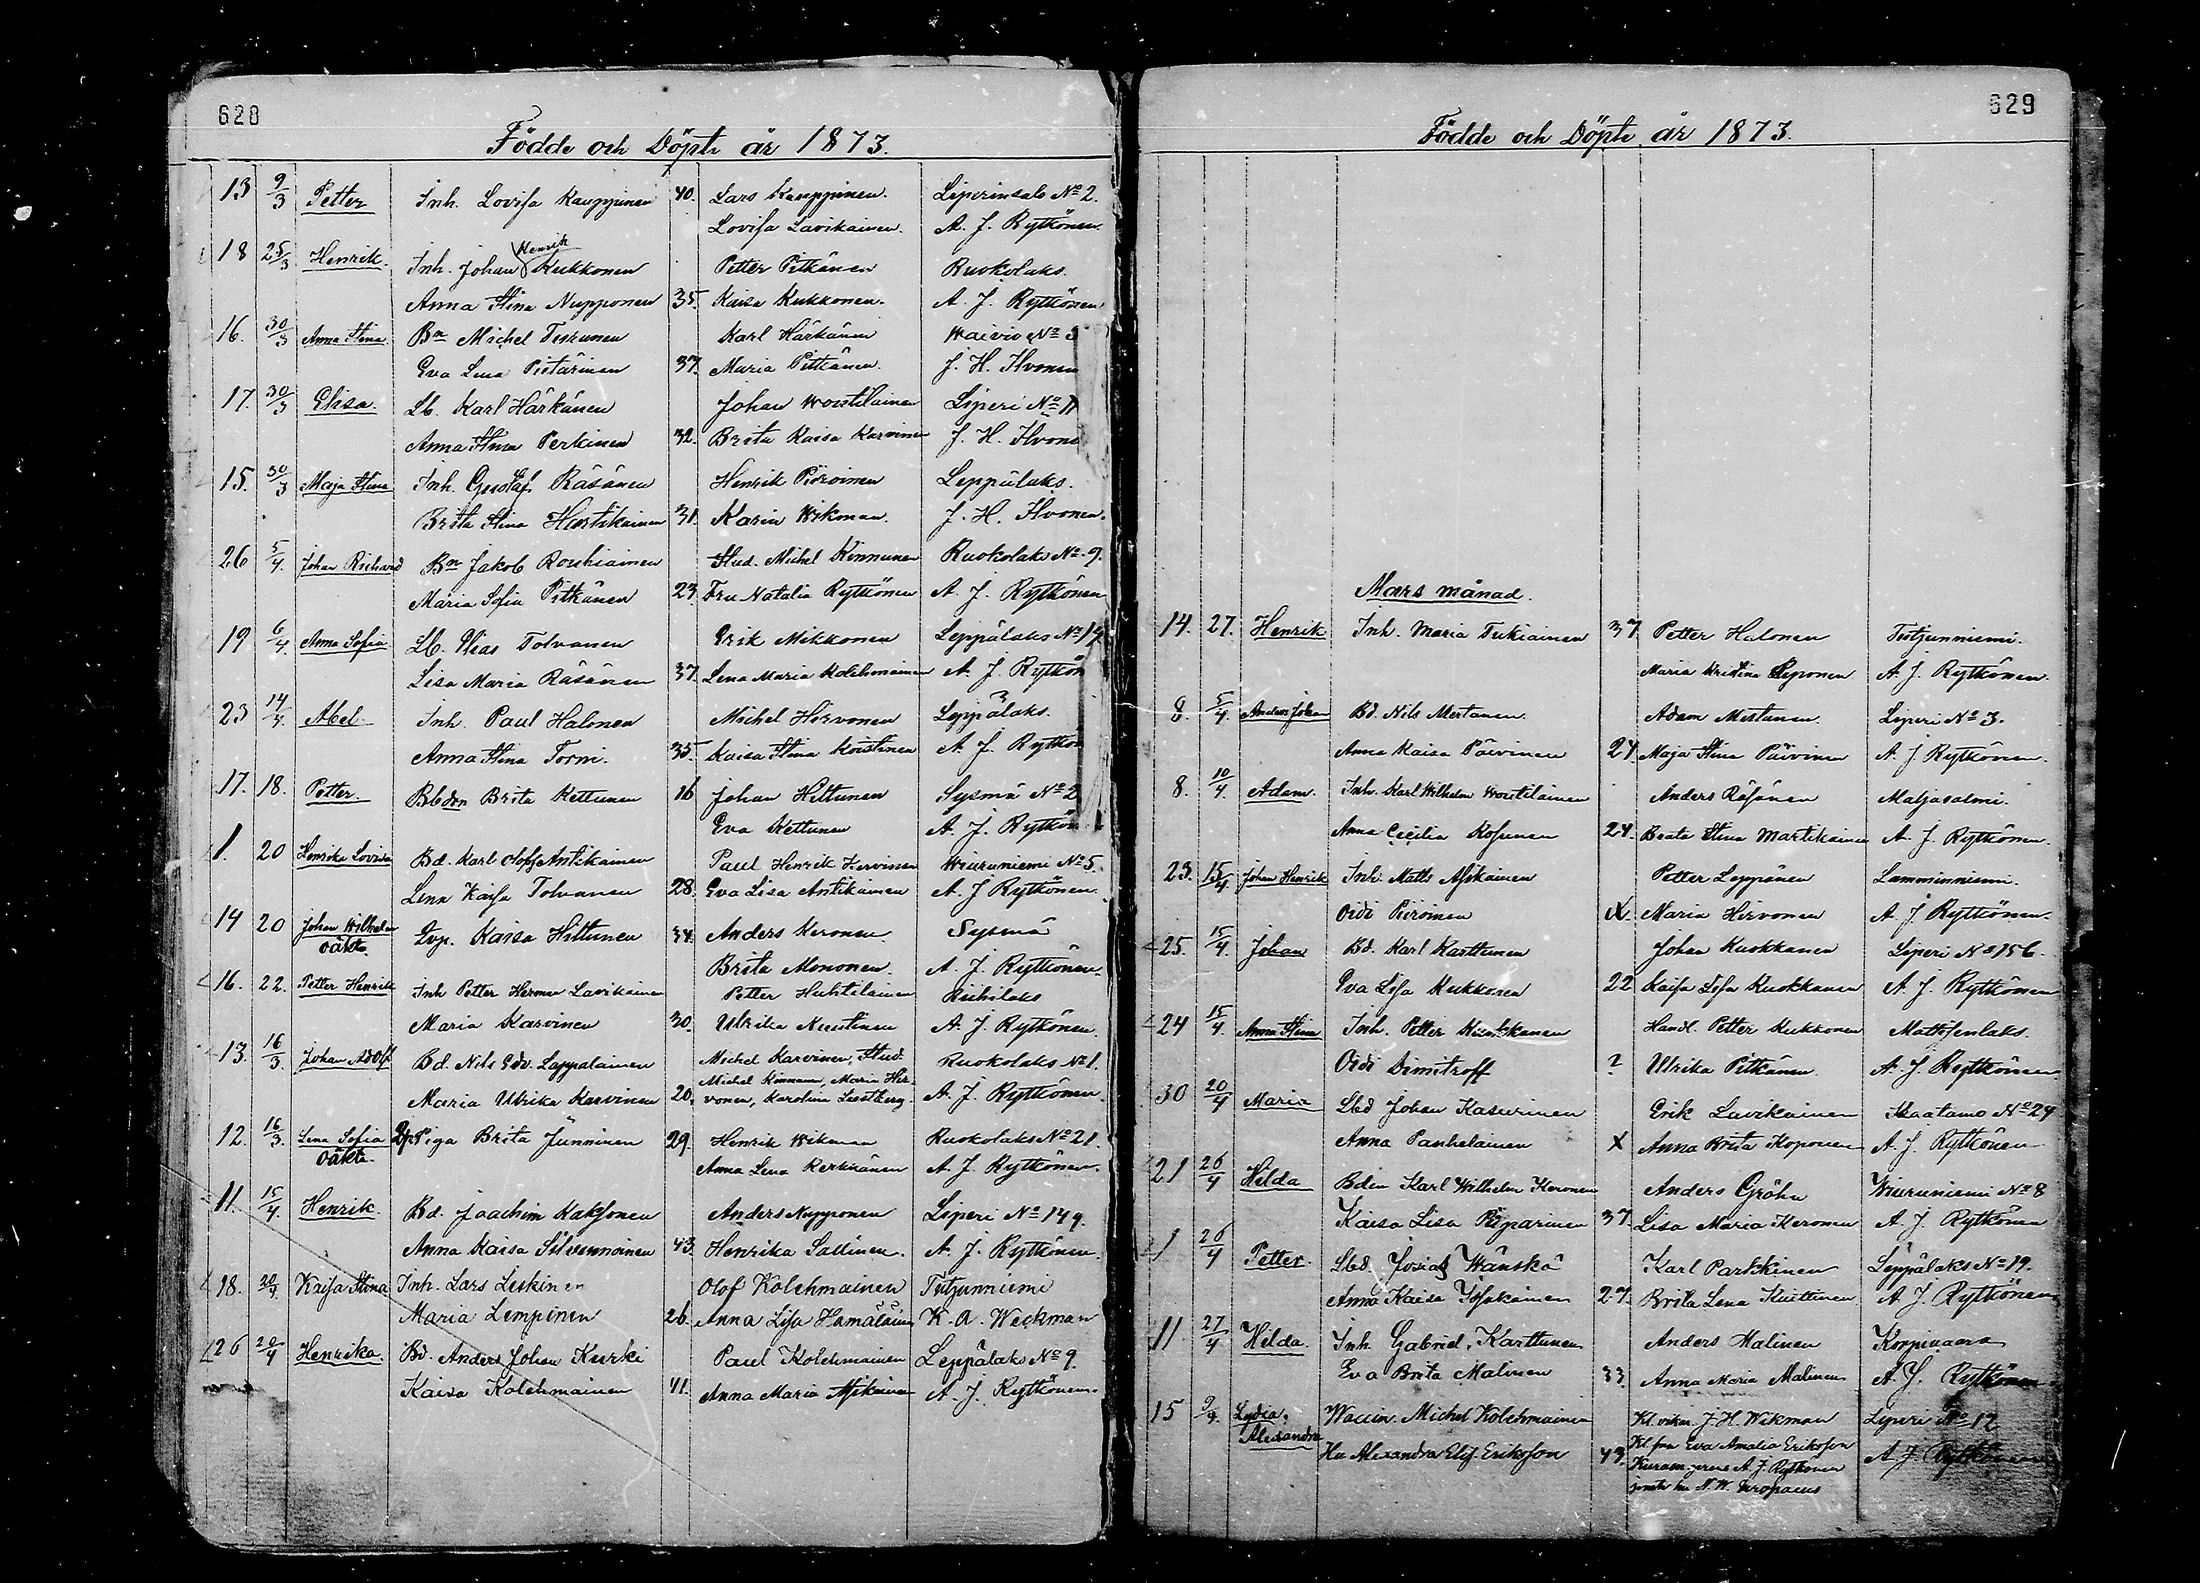 628
Födde och Döpte år 1873.
13 9/3 Petter Inh. Lovisa Kauppinen 40. Lars Kauppinen. Liperinsalo No 2.
Lovisa Lavikainen. A. J. Rytkönen.
18 25/3 Henrik. Inh. Johan Henrik Kukkonen Petter Pitkänen Ruokolaks.
Anna Stina Nupponen 35. Kaisa Kukkonen. A. J. Rytkönen.
16. 30/3 Anna Stina Bn Michel Karl Härkänen Waivio No 3
Eva Lena 37. Maria Pitkänen. J. H. Ilvonen
17. 30/3 Elisa. Lb. Karl Härkänen Johan Woutilainen Liperi No 11
Anna Stina Perkinen 32. Brita Kaisa Karvinen J. H. Ilvonen
15. 30/3 Maja Stina Inh. Gustaf Räsänen Henrik Piiroinen Leppälaks.
Brita Stina Hartikainen 31. Karin Wikman. J. H. Ilvonen.
26 5/4. Johan Richard Bn Jakob Rouhiainen Stud. Michel Kinnunen Ruokolaks No 9.
Maria Sofia Pitkänen 23. Fru Natalia Rytkönen A. J. Rytkönen
19 6/4. Anna Sofia Lb. Elias Tolvanen Erik Mikkonen Leppälaks No 19
Lisa Maria Räsänen 37. Lena Maria Kolehmainen A. J. Rytkön
23 14/4 Abel Inh. Paul Halonen Michel Hirvonen Leppälaks.
Anna Stina Torni. 35. Kaisa Stina Koistinen A. J. Rytkön
17. 18. Petter. Bbdrn Brita Kettunen 16 Johan Hiltunen Sysmä No 2
Eva Kettunen A. J. Rytkön
1. 20 Henrika Lovisa Bd. Karl Olof Antikainen Paul Henrik Hirvonen Wiuruniemi No 5.
Lena Kaisa Tolvanen 28. Eva Lisa Antikainen A. J. Rytkönen.
14 20 Johan Wilhelm oäkta. Qvp. Kaisa Hiltunen 34. Anders Keronen. Sysmä
Brita Mononen. A. J. Rytkönen.
16. 22. Petter Henrik Inh Petter Herman Lavikainen Petter Huhtilainen Riihilaks
Maria Karvinen 30. Ulrika Mustonen A. J. Rytkönen.
13. 16/3. Johan Adolf Bd. Nils Edv. Lappalainen Michel Karvinen, Stud. Ruokolaks No 1.
Michel Kinnunen, Maria Hir-
Maria Ulrika Karvinen 20. vonen, Karolina A. J. Rytkönen.
12. 16/3. Lena Sofia oäkta. Qvp Piga Brita Jänninen 29. Henrik Wikman Ruokolaks No 21.
Anna Lena Kerkkänen A. J. Rytkönen.
11. 15/4. Henrik. Bd. Joachim Kaksonen Anders Nupponen Liperi No 149.
Anna Kaisa Silvennoinen 43. Henrika Sallinen. A. J. Rytkönen.
18. 20/4 Kaisa Stina Inh. Lars Leskinen Olof Kolehmainen Tutjunniemi
Maria Lempinen 26. Anna Lisa Hämäläinen K. A. Weckman
26 20/4 Henrika. Bd. Anders Johan Kurki Paul Kolehmainen Leppälaks No 9.
Kaisa Kolehmainen 41. Anna Maria Asikainen A. J. Rytkönen.
629
Födde och Döpte år 1873.
Mars månad.
14. 27. Henrik Inh. Maria Tukiainen 37 Petter Halonen Tutjunniemi.
Maria Kristina Reponen A. J. Rytkönen.
8. 5/4. Anders Johan Bd. Nils Mertanen. Adam Mertanen. Liperi No 3.
Anna Kaisa Päivinen 24. Maja Stina Päivinen A. J. Rytkönen.
8. 10/4. Adam. Inh. Karl Wilhelm Woutilainen Anders Räsänen Maljasalmi.
Anna Cecilia Kosunen 24. Beata Stina Martikainen A. J. Rytkönen.
23. 15/4 Johan Henrik Inh. Matts Asikainen Petter Leppänen Lamminniemi.
Oidi Piiroinen X. Maria Hirvonen A. J. Rytkönen.
25. 15/4. Johan Bd. Karl Karttunen Johan Kuokkanen Liperi No 156.
Eva Lisa Kukkonen 22 Kaisa Lisa Kuokkanen A. J. Rytkönen
24 15/4. Anna Stina Inh. Petter Kuokkanen Handl. Petter Kukkonen Mattisenlaks.
Oidi Dimitroff ? Ulrika Pitkänen A. J. Rytkönen.
30 20/4 Maria Lbd Johan Kasurinen Erik Lavikainen Skaatamo No 24
Anna Panhelainen X Anna Brita Koponen A. J. Rytkönen
21 26/4 Hilda Bden Karl Wilhelm Keronen Anders Gröhn Wiuruniemi No 8
Kaisa Lisa Piiparinen 37. Lisa Maria Keronen A. J. Rytkönen
1 26/4 Petter. Lbd. Josias Wänskä Karl Parkkinen Leppälaks No 19.
Anna Kaisa Issakainen 27. Brita Lena Kuittinen A. J. Rytkönen
11. 27/4 Hilda. Inh. Gabriel Karttunen Anders Malinen Korpivaara
Eva Brita Malinen 33. Anna Maria Malinen A. J. Rytkönen
15 9/4. Lydia Alexandra Waccin. Michel Kolehmainen Kl vikar. J. H. Wikman Liperi No 12
Hu Alexandra Elis. Eriksson 43. Kl fru Eva Amalia Eriksson A. J. Rytkönen
A. J. Rytkönen
N. W. Europaeus